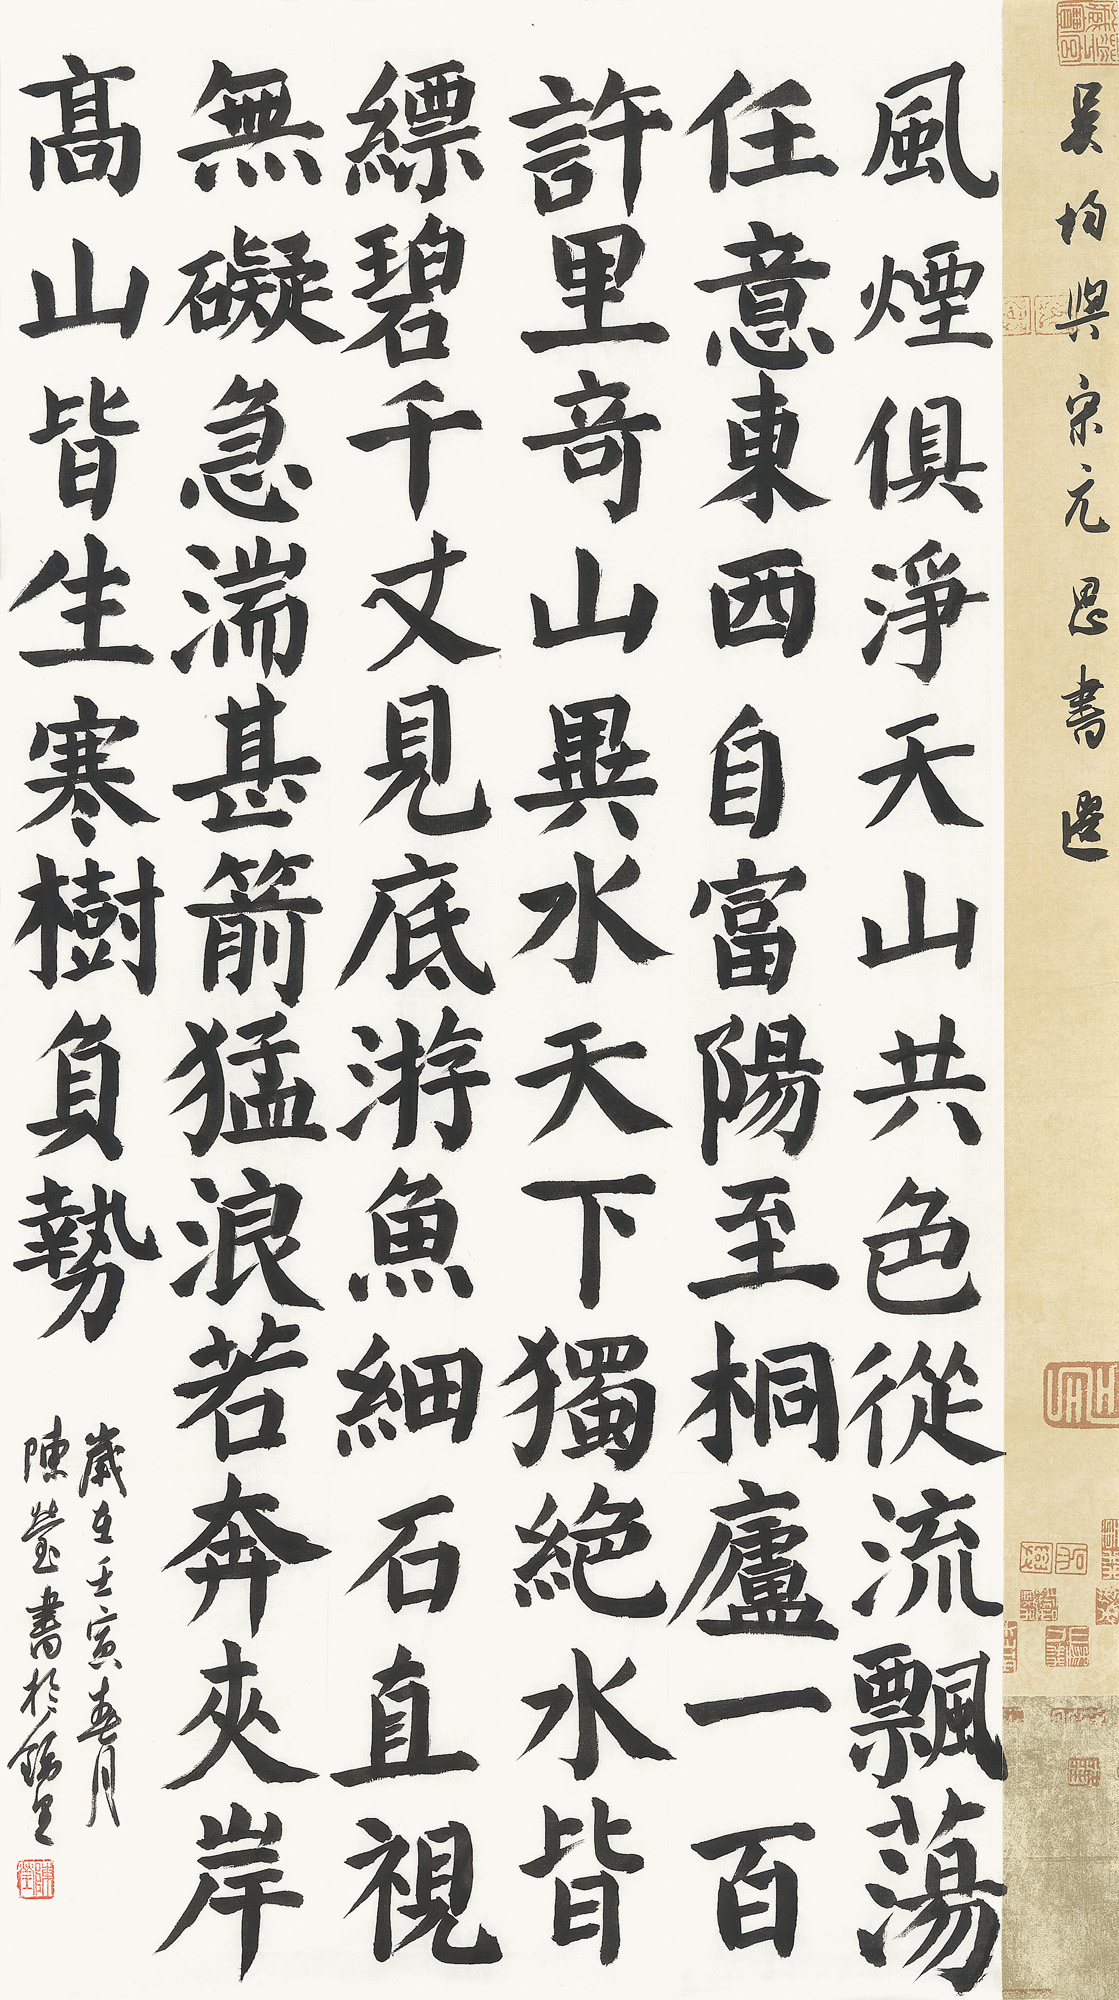 吳均與宋元思書選
風煙俱淨天山共色從流飄蕩
任意東西自富陽至桐廬一百
許里奇山異水天下獨絕水皆
縹碧千丈見底游魚細石直視
無礙急湍甚箭猛浪若奔夾岸
高山皆生寒樹負勢
歲在壬寅春月
陳瑩書於錫里